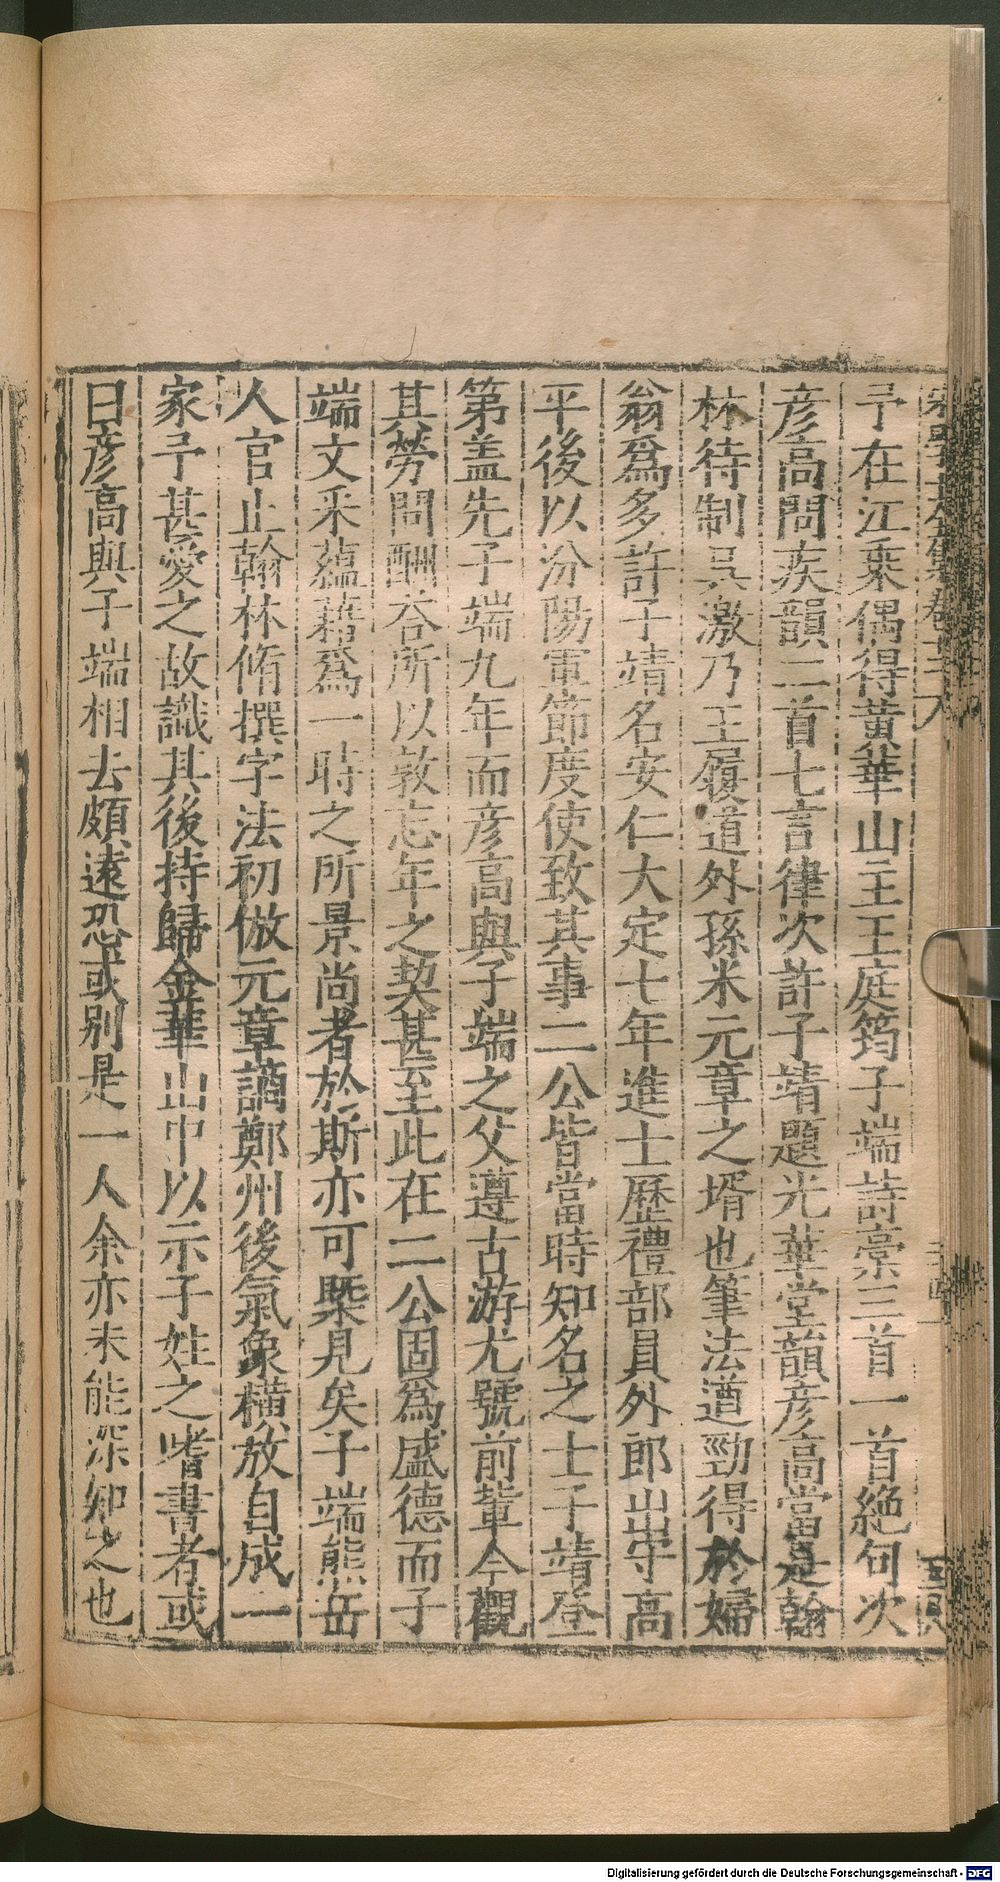 予在江乘偶得黃華山主王庭筠子端詩藁三首一首絕句次
彦高問疾韻二首七言律次許子靖題光華堂韻彦高當是翰
林待制吳激乃王履道外孫米元章之壻也筆法遒勁得於婦
翁爲多許子靖名安仁大定七年進士歷禮部員外郎出守高
平後以汾陽軍節度使致其事二公皆當時知名之士子靖登
第盖先子端九年而彦高與子端之父遵古游尤號前輩今觀
其勞問酬荅所以敦忘年之契甚至此在二公固爲盛德而子
端文采蘊藉爲一時之所景尚者於斯亦可槩見矣子端熊岳
人官止翰林脩撰字法初倣元章謫鄭州後氣象橫放自成一
家予甚愛之故識其後持歸金華山中以示子姓之嗜書者或
曰彦高與子端相去頗遠恐或别是一人余亦未能深知之也
Digitalisierung gefördert durch die Deutsche Forschungsgemeinschaft - DFG